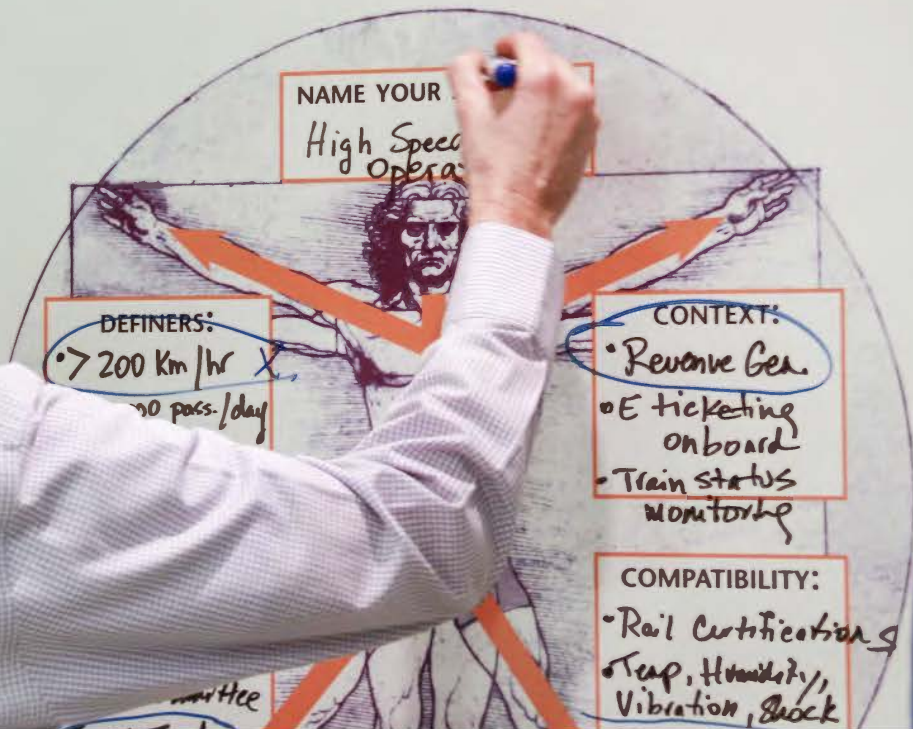 NAME YOUR
High Speed
Opera
DEFINERS:
• > 200 Km/hr X
00 pass./day
CONTEXT:
• Revenue Gen.
• E ticketing
onboard
• Train status
monitoring
COMPATIBILITY:
• Rail Certifications
• Temp, Humidity,
Vibration, Shock